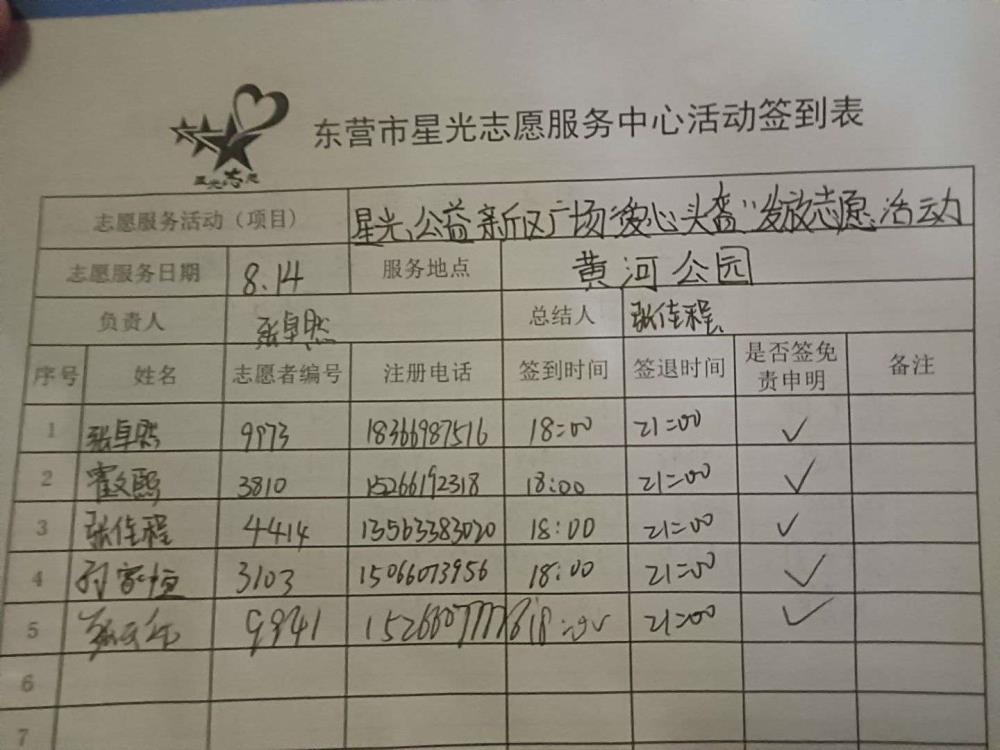 星光志愿
东营市星光志愿服务中心活动签到表
志愿服务活动（项目） 星光公益新区广场“爱心头盔”发放志愿活动
志愿服务日期 8.14 服务地点 黄河公园
负责人 张卓然 总结人 张佳程
序号 姓名 志愿者编号 注册电话 签到时间 签退时间 是否签免责申明 备注
1 张卓然 9973 18366987516 18:00 21:00 ✓
2 霍文熙 3810 15266192318 18:00 21:00 ✓
3 张佳程 4414 13563383020 18:00 21:00 ✓
4 孙家恒 3103 15066073956 18:00 21:00 ✓
5 9941 21:00 ✓
6
7